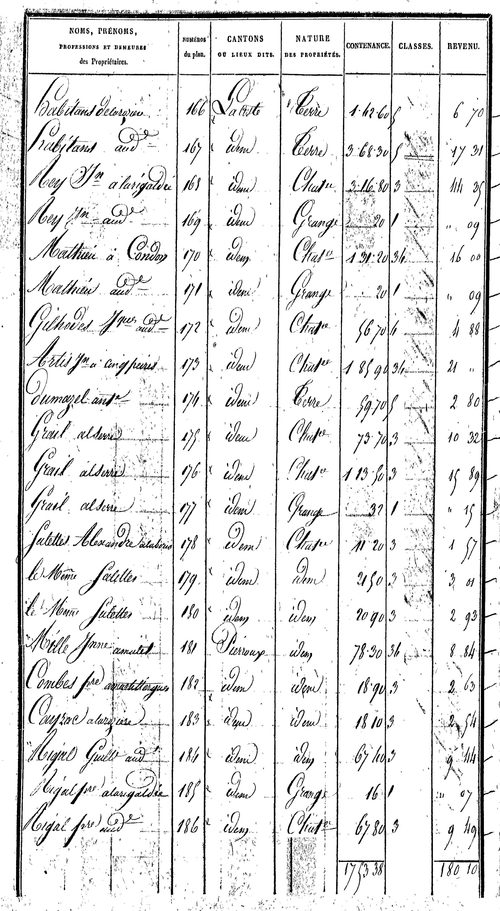 NOMS, PRÉNOMS, PROFESSIONS ET DEMEURES des Propriétaires. NUMÉROS du plan. CANTONS OU LIEUX DITS. NATURE DES PROPRIÉTÉS. CONTENANCE. CLASSES. REVENU.
habitans 166 Terre 1 42 60 5 6 70
habitans aud. 167 idem Terre 3 68 30 5 17 31
Rey Jn 168 idem Chatie 3 16 80 3 44 35
Rey Jn aud. 169 idem Grange 20 1 " 09
Mathieu à Condon 170 idem Chatie 1 31 20 34 16 00
Mathieu aud. 171 idem Grange 20 1 " 09
Gilhodes Jques aud. 172 idem Chatie 56 70 4 4 88
Artis Jn à cinq peires 173 idem Chatie 1 85 90 34 21 "
Dumazel ante 174 idem Terre 59 70 5 2 80
Grail alserre 175 idem Chatie 73 70 3 10 32
Grail alserre 176 idem Chatie 1 13 50 3 15 89
Grail alserre 177 idem Grange 32 1 " 15
Salettes Alexandre 178 idem Chatie 11 20 3 1 57
le Même Salettes 179 idem idem 21 50 3 3 01
le Même Salettes 180 idem idem 20 90 3 2 93
Mille 181 Pierroux idem 78 30 34 8 84
Combes fre 182 idem idem 18 90 3 2 63
Cayzac 183 idem idem 18 10 3 2 54
Rigal Guille aud. 184 idem idem 67 40 3 9 44
Rigal fre alarigaldie 185 idem Grange 16 1 " 07
Rigal fre aud. 186 idem Chatie 67 80 3 9 49
17 53 38 180 10